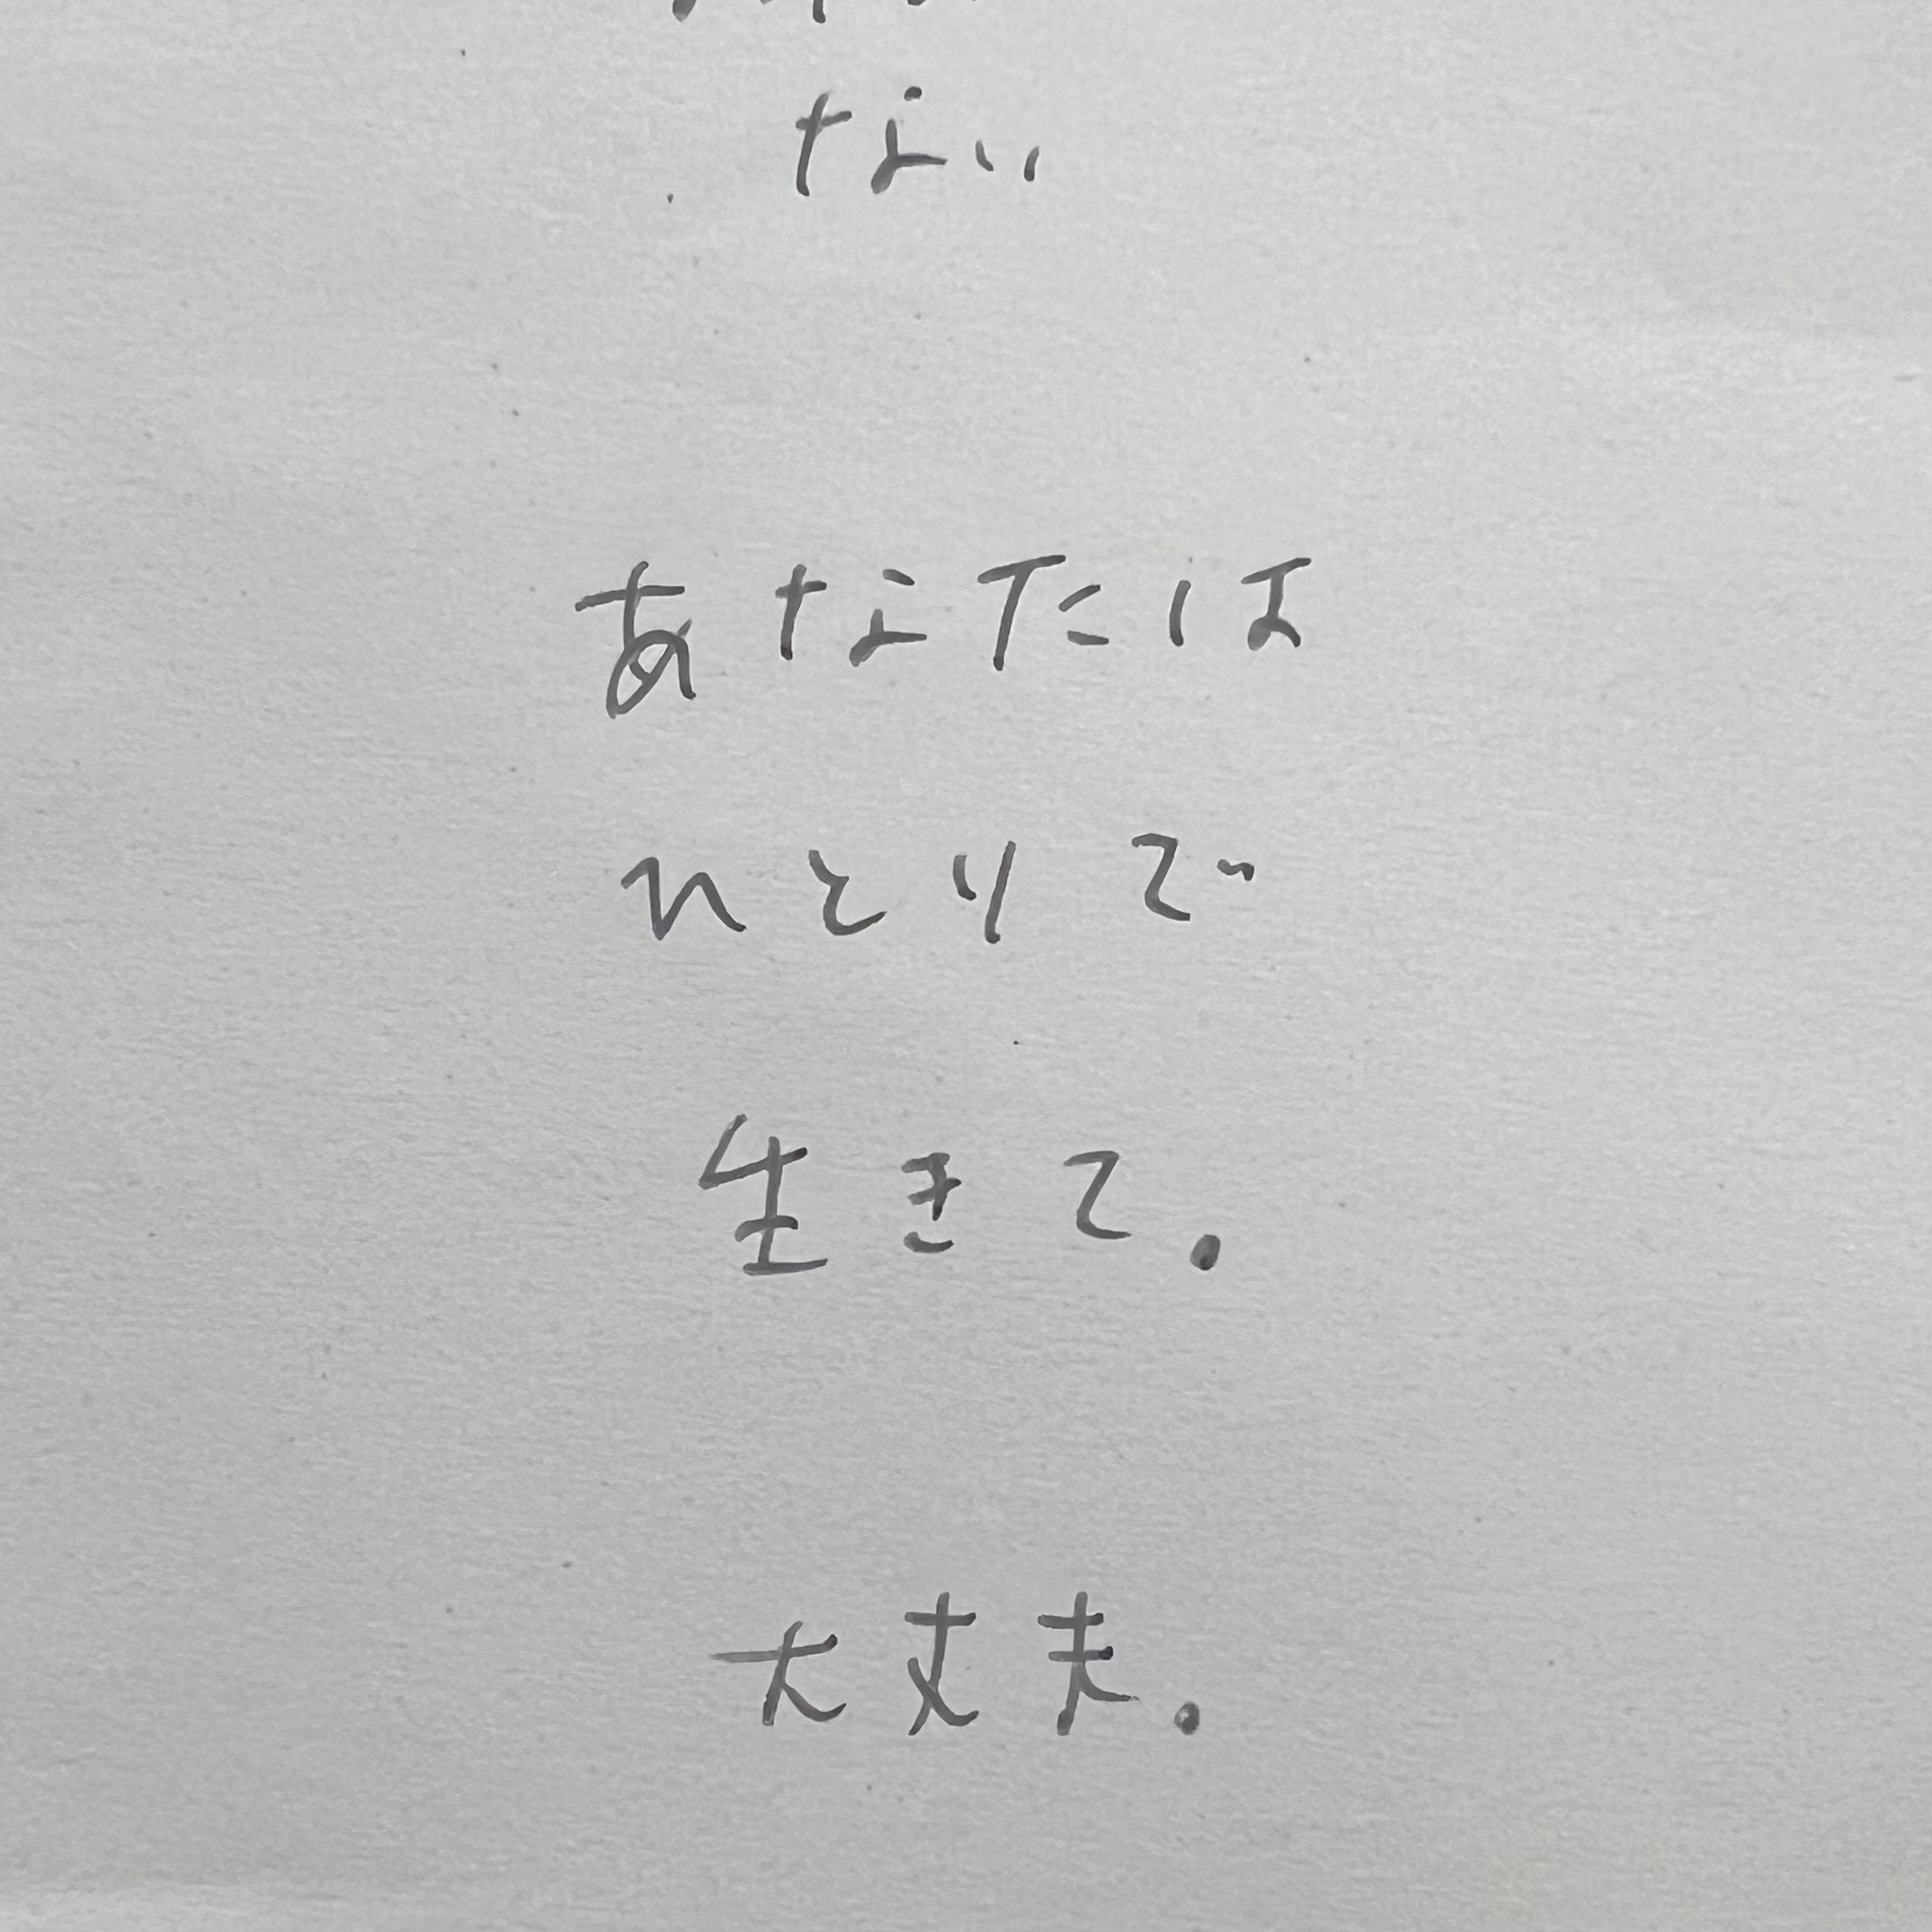 ない
あなたは
ひとりで
生きて.
大丈夫.